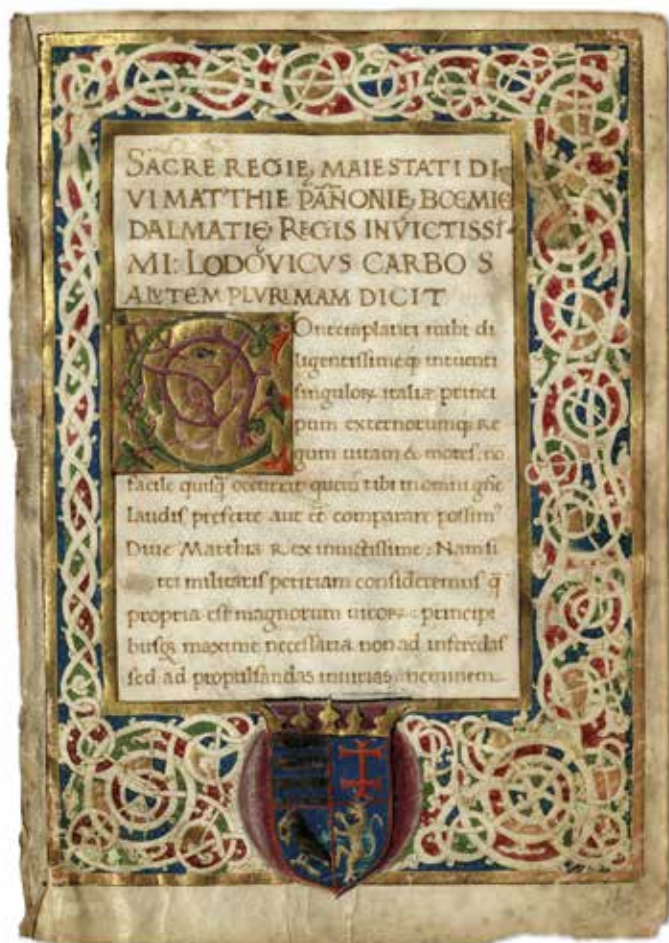 SACRE REGIE, MAIESTATI DI
VI MATTHIE PAÑONIE, BOEMIE
DALMATIE, REGIS INVICTISSI
MI: LODOVICVS CARBO S
ALVTEM PLVRIMAM DICIT
COntemplanti mihi di
ligentissimeqꝫ intuenti
singuloꝝ italiæ princi
pum externorumqꝫ Re
gum uitam & mores: nō
facile quisq̃ occurrit quem tibi in omni gñe
laudis preferre aut eē comparare possim?
Diue Matthia Rex inuictissime: Nam si
rei militaris peritiam consideremus q̃
propria est magnorum uiroꝝ: principi
busqꝫ maxime necessaria non ad inferēdas
sed ad propulsandas iniurias: neminem